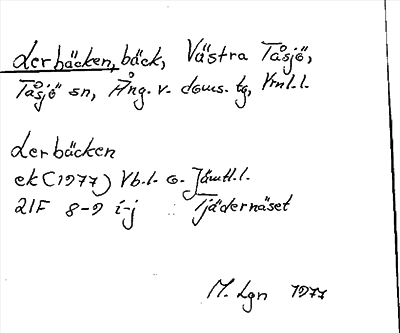 Lerbäcken, bäck, Västra Tåsjö,
Tåsjö sn, Ång. v. doms. tg, Vrnl.l.
Lerbäcken
ek (1977) Vb.l. o. Jämtl.l.
21F 8-9 i-j Tjädernäset
M. Lgn 1977